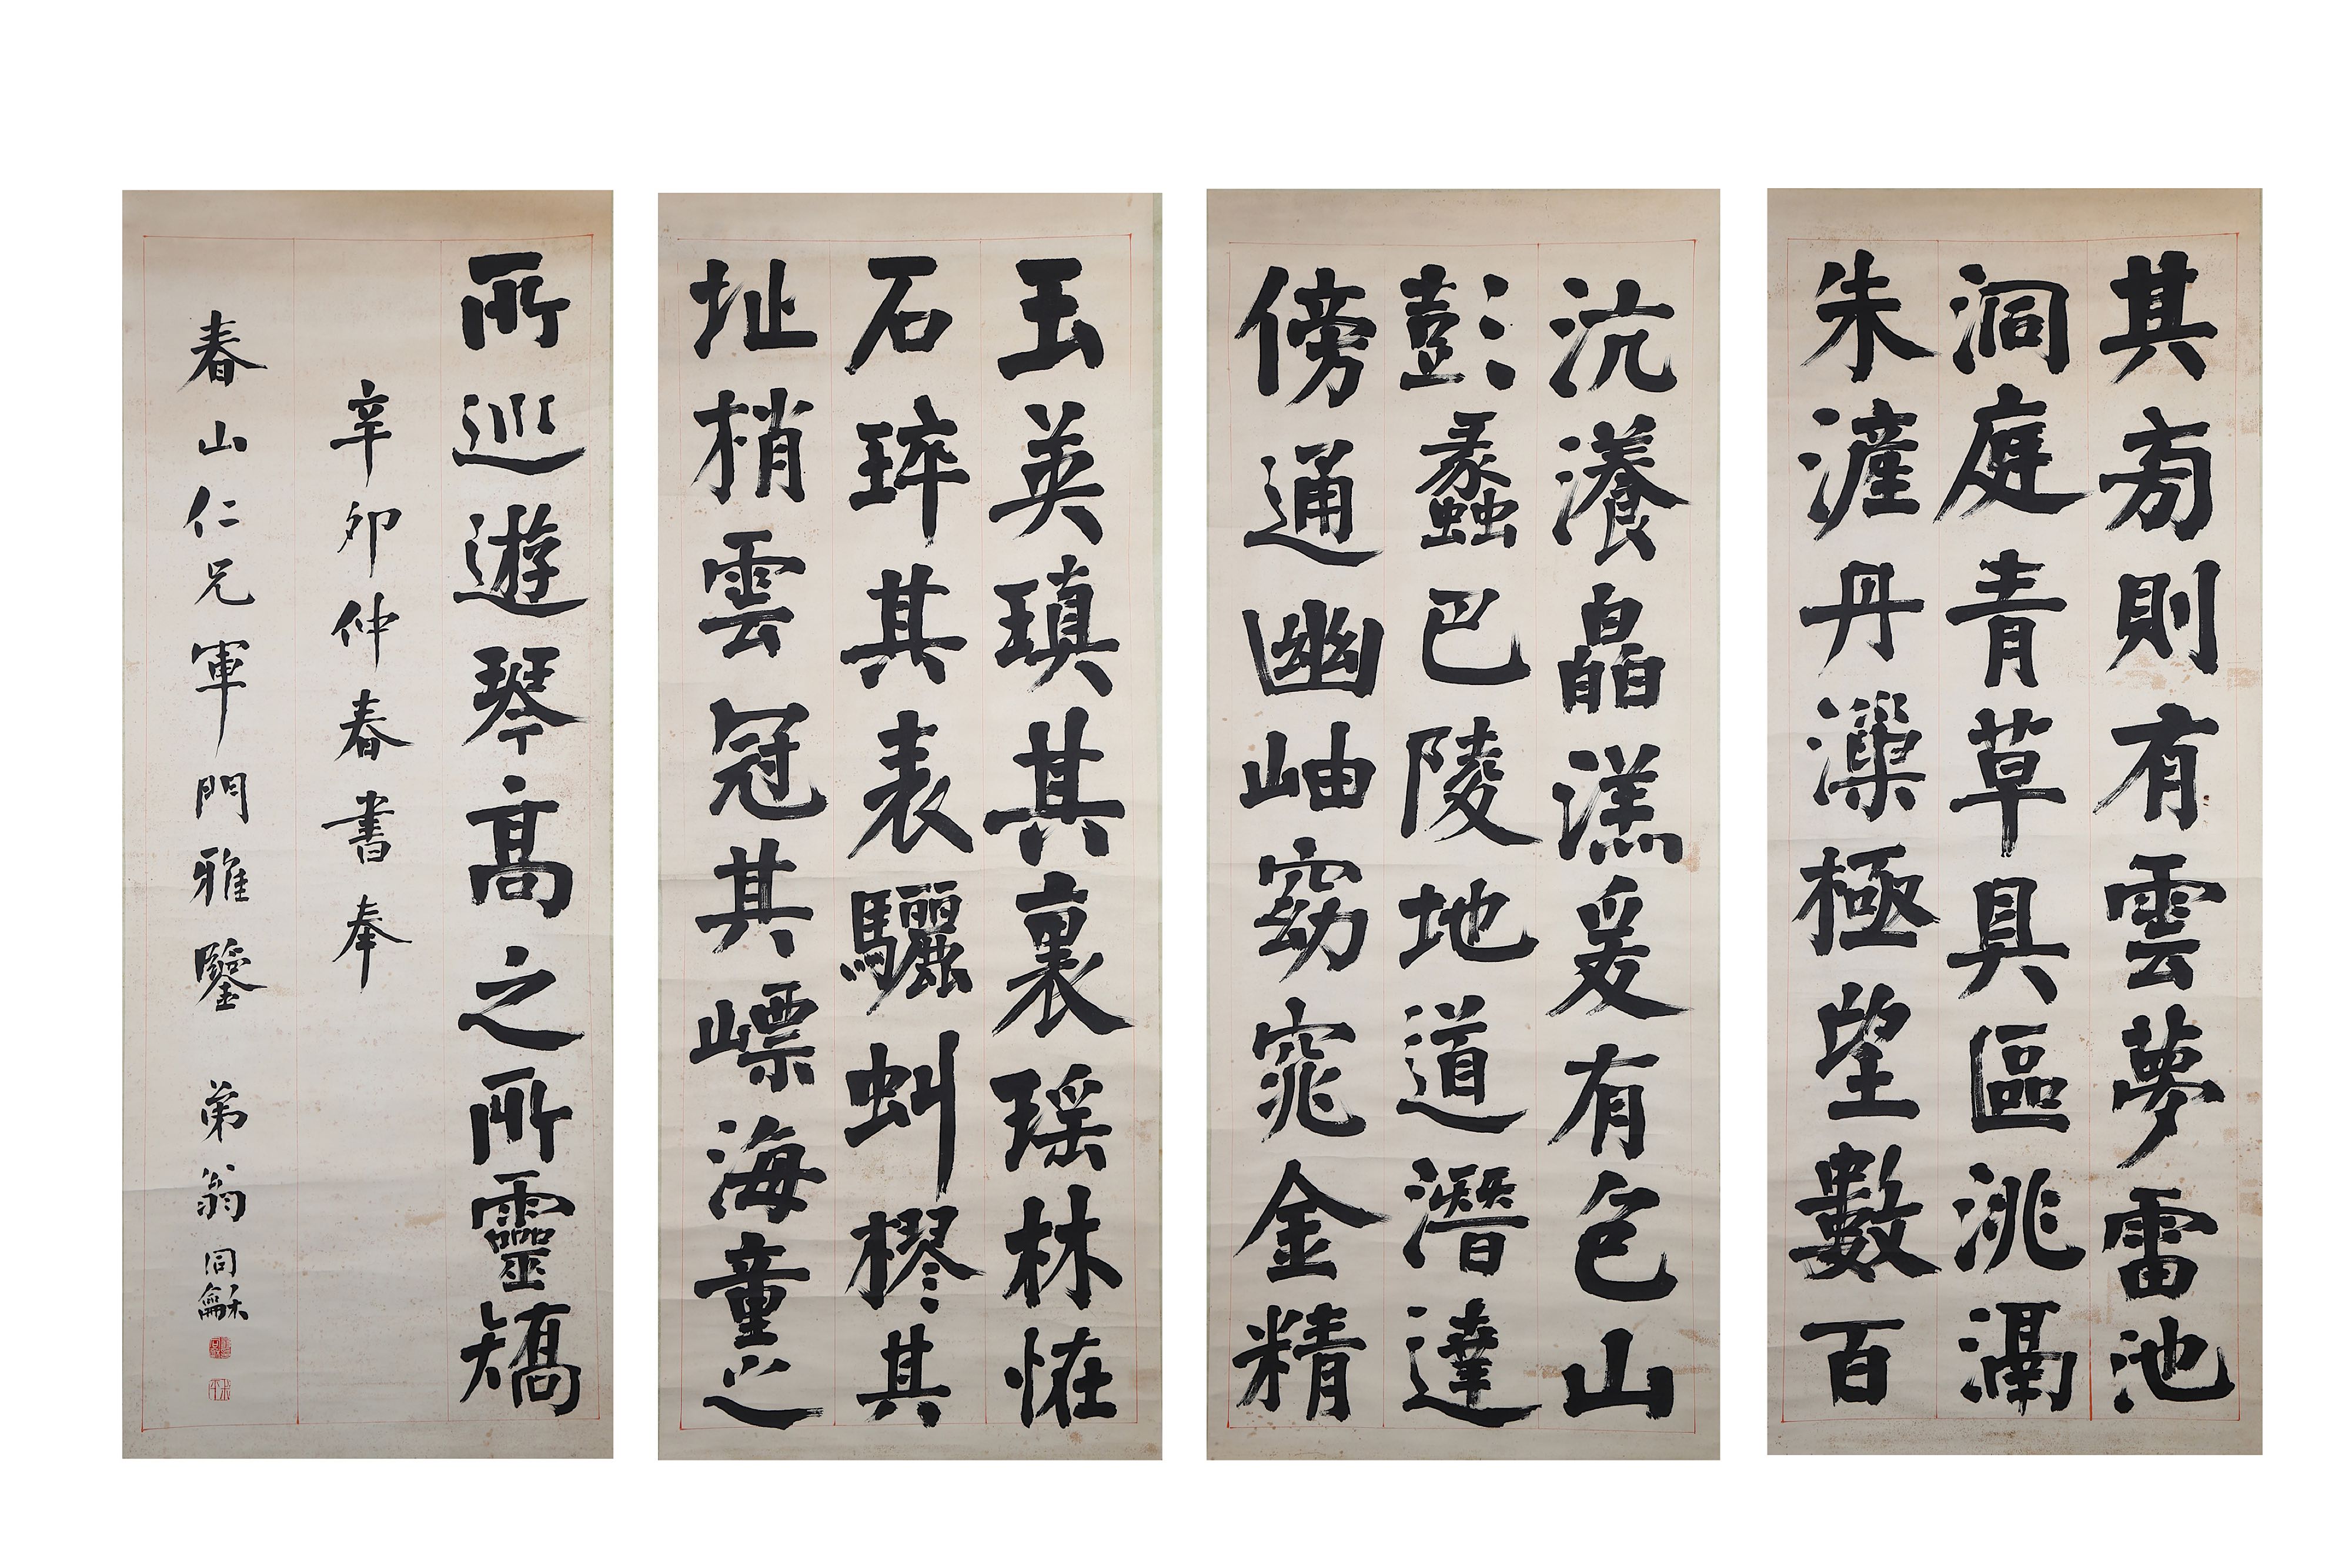 其旁則有雲夢雷池
洞庭青草具區洮滆
朱滻丹漅極望數百
沆瀁皛溔爰有包山
彭蠡巴陵地道潛達
傍通幽岫窈窕金精
玉英瑱其裏瑤林恠
石琗其表驪虯樛其
址梢雲冠其㟽海童之
所巡遊琴高之所靈矯
辛卯仲春書奉
春山仁兄軍門雅鑒 弟翁同龢